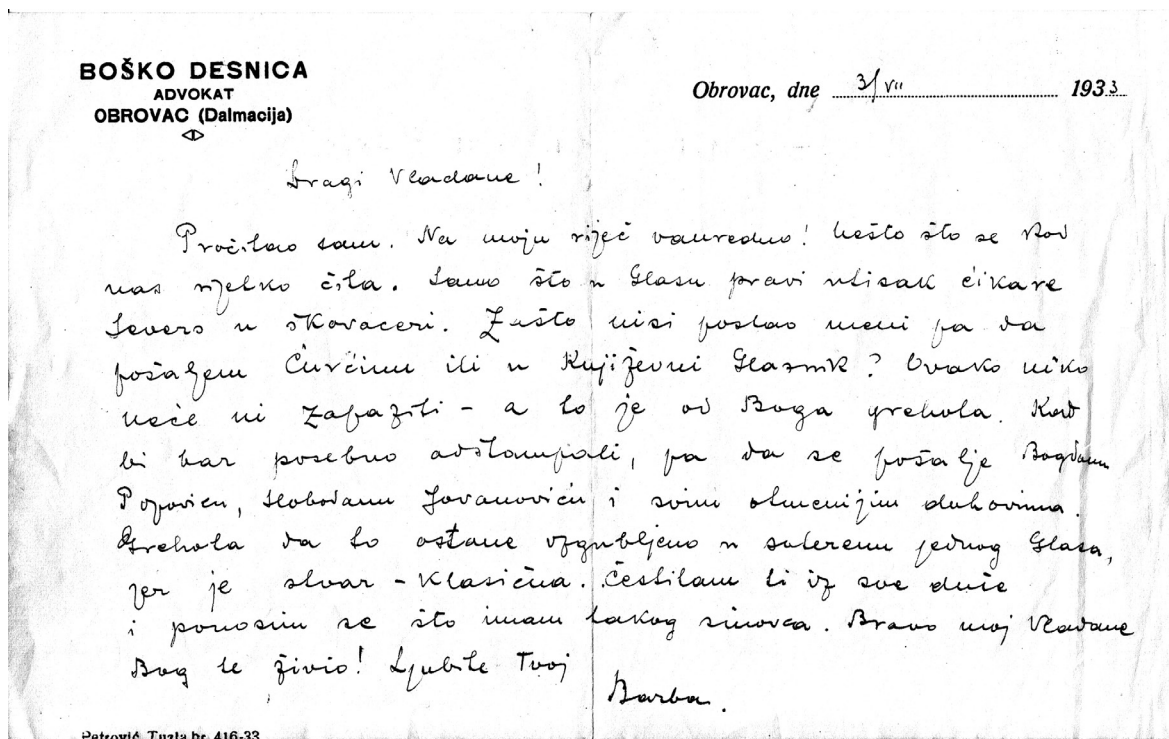 BOŠKO DESNICA
ADVOKAT
OBROVAC (Dalmacija)
Obrovac, dne 3/VII 1933
Dragi Vladane!
Pročitao sam. Na moju riječ vanredno! Nešto što se kod
nas rijetko čita. Samo što u Glasu pravi utisak ćikare
Sevres u škovaceri. Zašto nisi poslao meni pa da
pošaljem Ćurčinu ili u Književni Glasnik? Ovako niko
neće ni zapaziti - a to je od Boga grehota. Kad
bi bar posebno odštampali, pa da se pošalje Bogdanu
Popoviću, Slobodanu Jovanoviću i svim otmenijim duhovima.
Grehota da to ostane izgubljeno u suterenu jednog Glasa,
jer je stvar - klasična. Čestitam ti iz sve duše
i ponosim se što imam takog sinovca. Bravo moj Vladane
Bog te živio! Ljubi te Tvoj
Barba.
Petrović, Tuzla br. 416-33